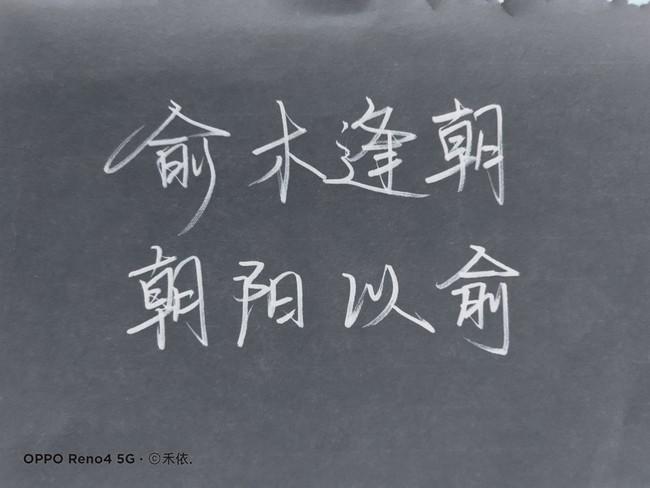 俞木逢朝
朝阳以俞
OPPO Reno4 5G · ©禾依.